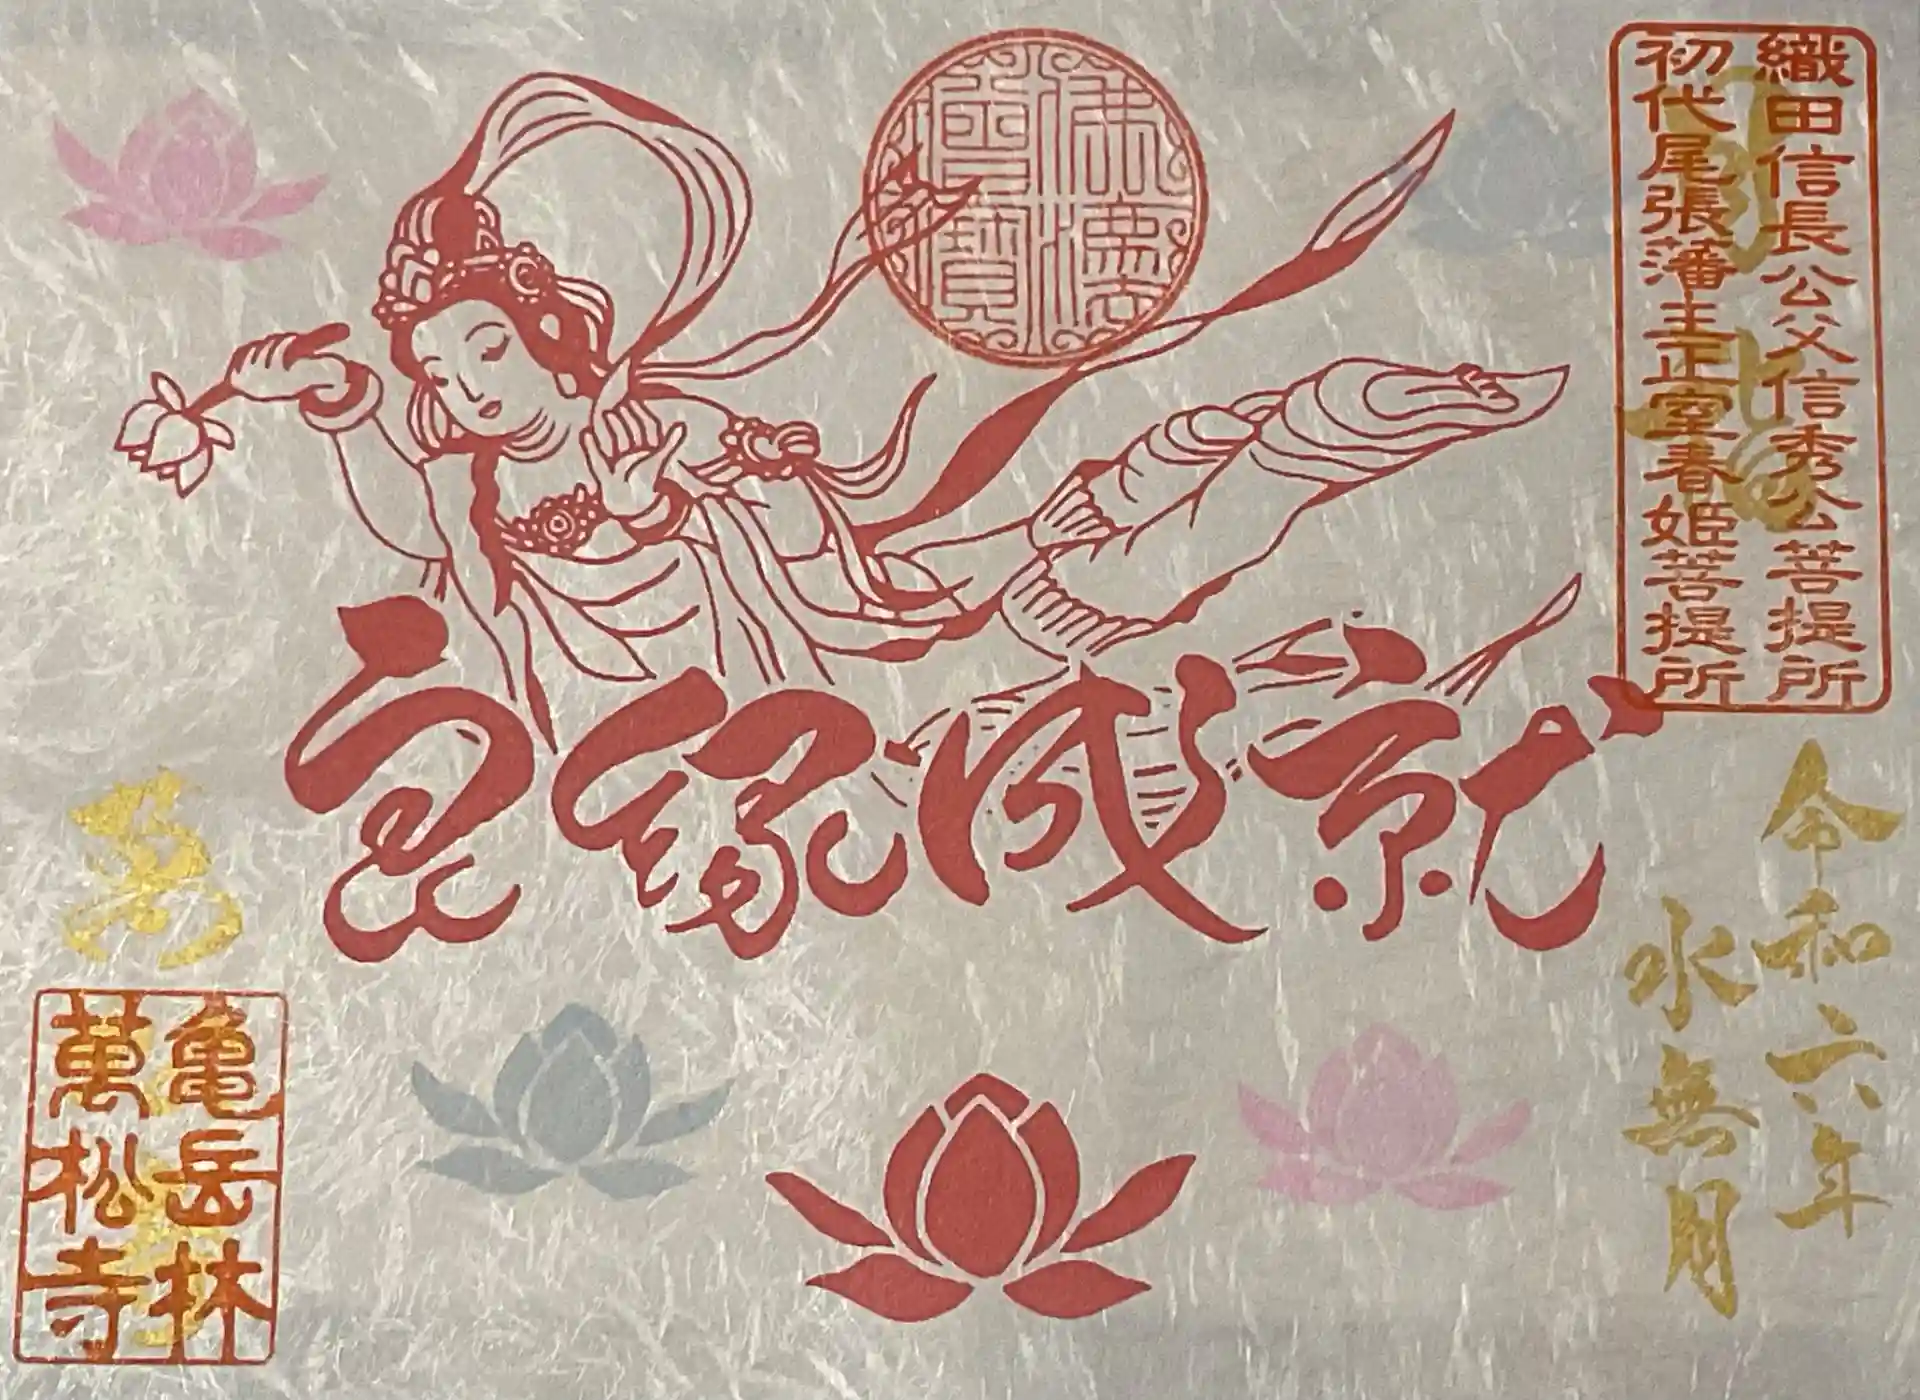 織田信長公父信秀公菩提所
初代尾張藩主正室春姫菩提所
佛灋
僧寶
良縁成就
令和六年
水無月
萬松寺
亀岳林
萬松寺